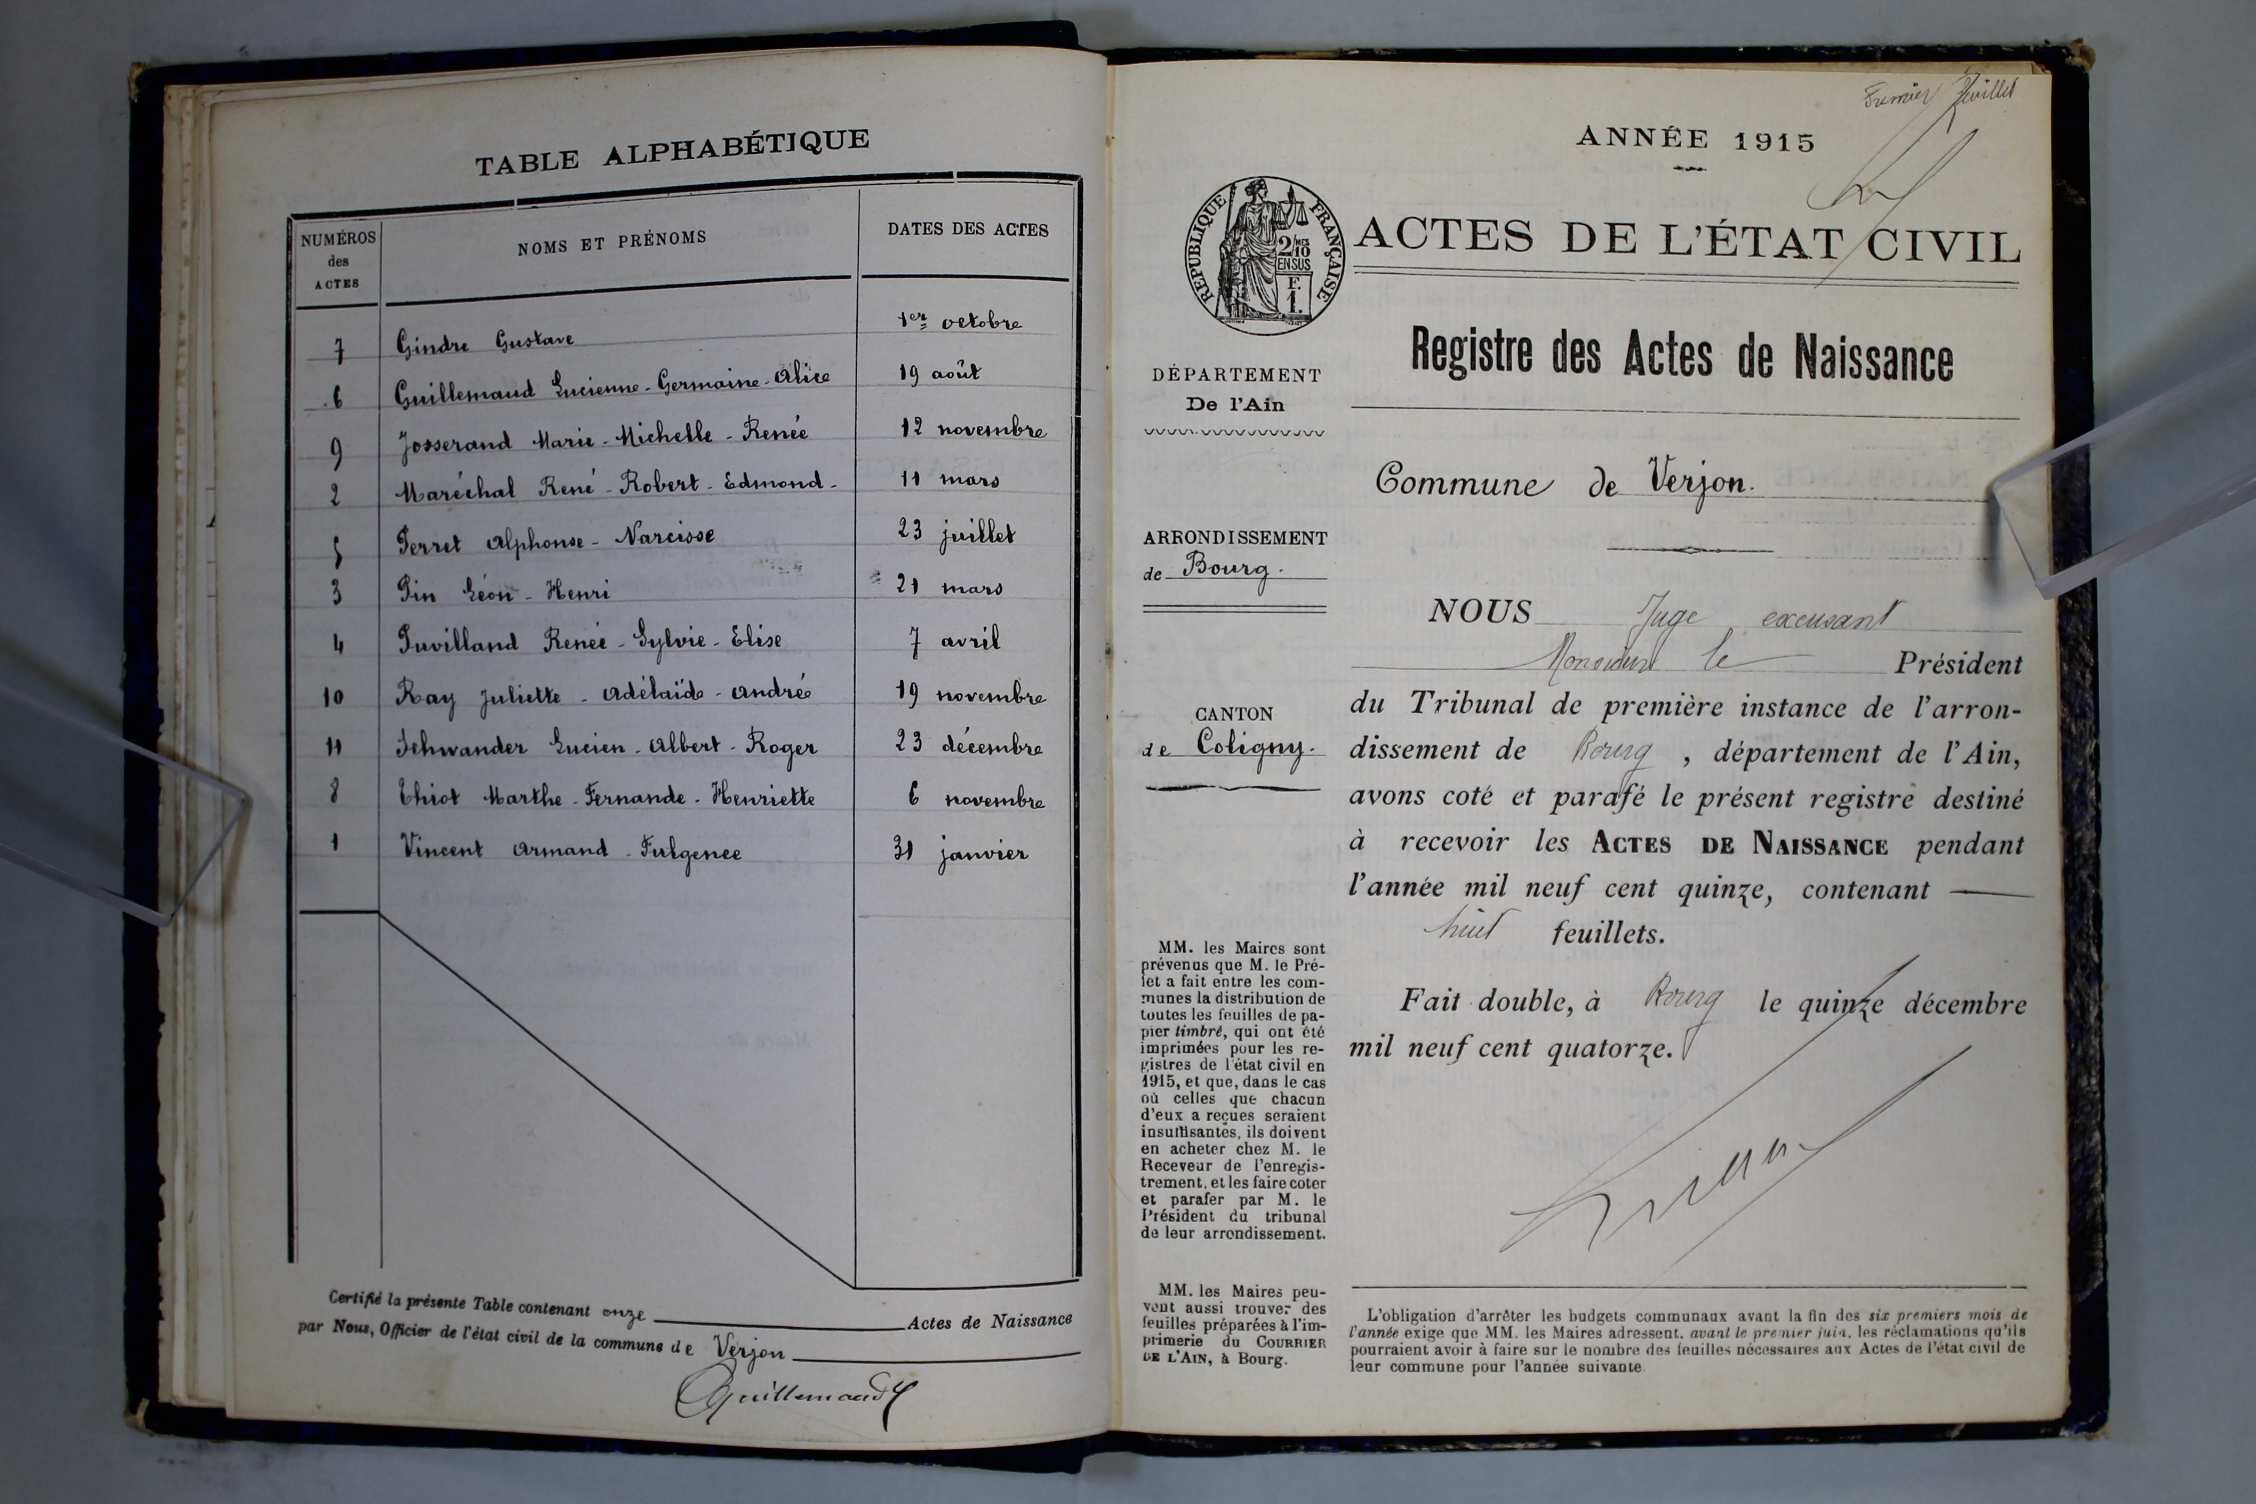 TABLE ALPHABÉTIQUE
NUMÉROS des ACTES NOMS ET PRÉNOMS DATES DES ACTES
7 Gindre Gustave 1er octobre
6 Guillemaud Lucienne - Germaine - Alice 19 août
9 Josserand Marie - Michelle - Renée 12 novembre
2 Maréchal René - Robert - Edmond - 11 mars
5 Perret Alphonse - Narcisse 23 juillet
3 Pin Léon - Henri 21 mars
4 Puvilland Renée - Sylvie - Elise 7 avril
10 Ray Juliette - Adélaïde - Andrée 19 novembre
11 Schwander Lucien - Albert - Roger 23 décembre
8 Thiot Marthe - Fernande - Henriette 6 novembre
1 Vincent Armand - Fulgence 31 janvier
Certifié la présente Table contenant onze Actes de Naissance
par Nous, Officier de l'état civil de la commune de Verjon
Guillemaud
Premier feuillet
ANNÉE 1915
RÉPUBLIQUE FRANÇAISE
2/10 MES
EN SUS
F.
1.
ACTES DE L'ÉTAT CIVIL
Registre des Actes de Naissance
DÉPARTEMENT
De l'Ain
Commune de Verjon.
ARRONDISSEMENT
de Bourg.
CANTON
de Coligny.
NOUS Juge excusant
Monsieur le Président
du Tribunal de première instance de l'arron-
dissement de Bourg, département de l'Ain,
avons coté et parafé le présent registre destiné
à recevoir les ACTES DE NAISSANCE pendant
l'année mil neuf cent quinze, contenant
huit feuillets.
Fait double, à Bourg le quinze décembre
mil neuf cent quatorze.
MM. les Maires sont
prévenus que M. le Pré-
fet a fait entre les com-
munes la distribution de
toutes les feuilles de pa-
pier timbré, qui ont été
imprimées pour les re-
gistres de l'état civil en
1915, et que, dans le cas
où celles que chacun
d'eux a reçues seraient
insuffisantes, ils doivent
en acheter chez M. le
Receveur de l'enregis-
trement, et les faire coter
et parafer par M. le
Président du tribunal
de leur arrondissement.
MM. les Maires peu-
vent aussi trouver des
feuilles préparées à l'im-
primerie du COURRIER
DE L'AIN, à Bourg.
L'obligation d'arrêter les budgets communaux avant la fin des six premiers mois de
l'année exige que MM. les Maires adressent, avant le premier juin, les réclamations qu'ils
pourraient avoir à faire sur le nombre des feuilles nécessaires aux Actes de l'état civil de
leur commune pour l'année suivante.